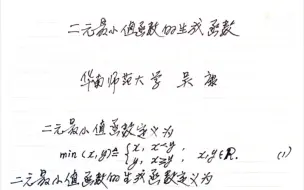 二元最小值函数的生成函数
华南师范大学 吴
二元最小值函数定义为
min(x,y)≡{x, x<y; y, x≥y, x,y∈R. (1)
二元最小值函数的生成函数定义为